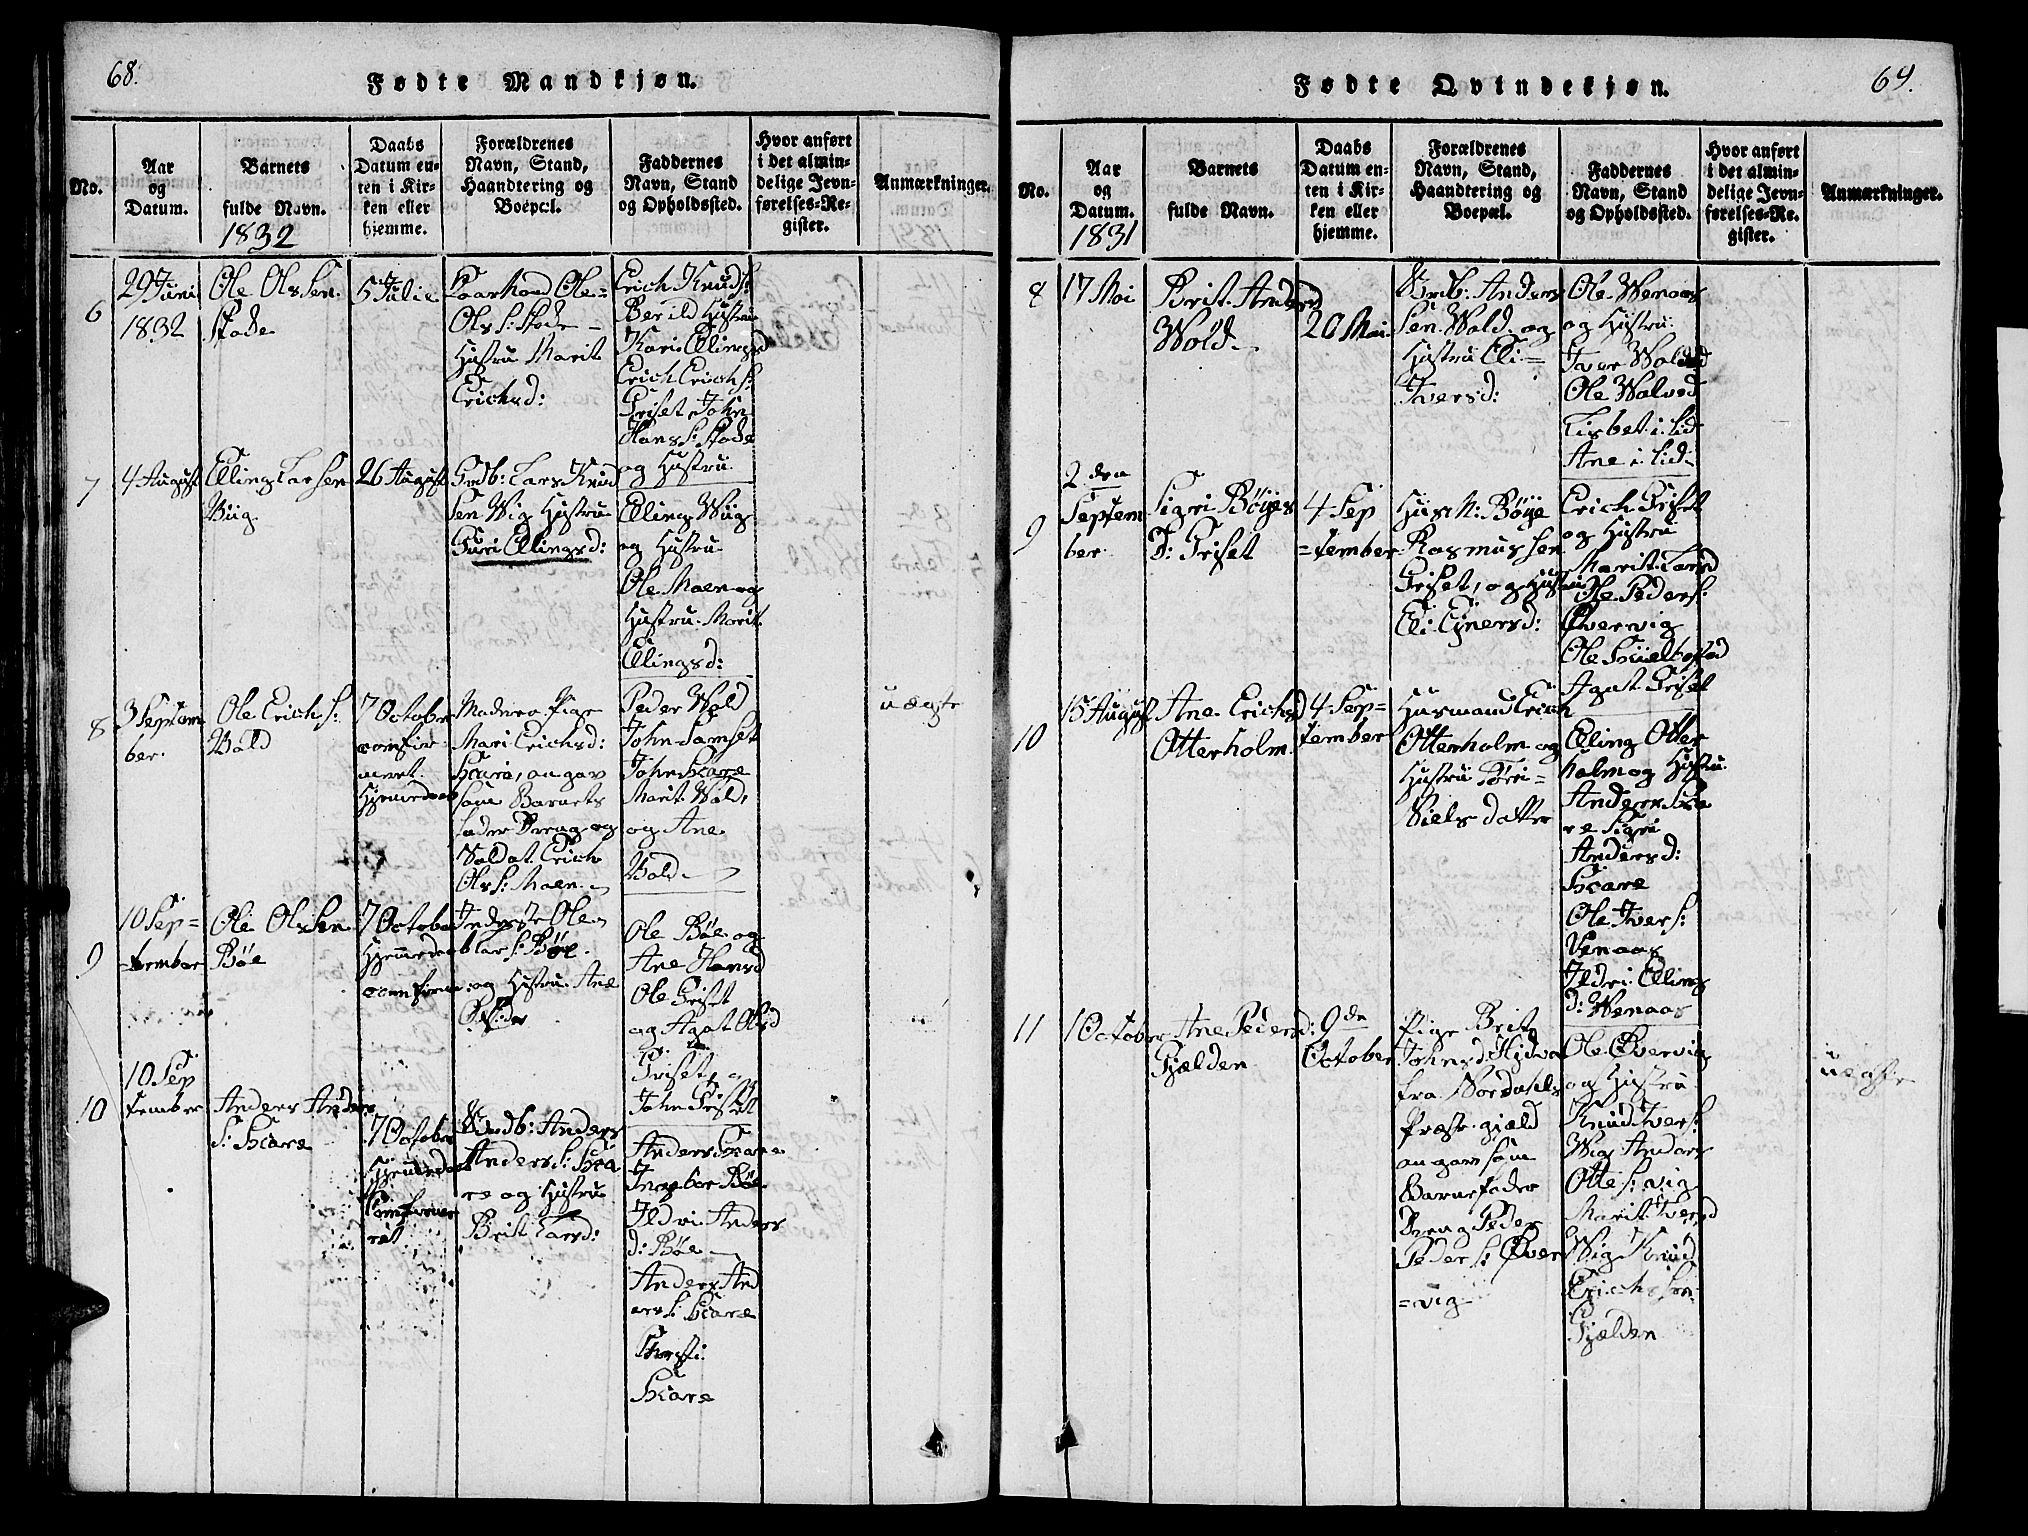 68.
Fødte Mandkjøn.
No.
Aar
og
Datum.
Barnets
fulde Navn.
1832
Daabs
Datum en-
ten i Kir-
ken eller
hjemme.
Forældrenes
Navn, Stand,
Haandtering og
Boepæl.
Faddernes
Navn, Stand
og Opholdssted.
Hvor anført
i det almin-
delige Jevn-
førelses-Re-
gister.
Anmærkninger.
6
29 Juni
1832
Ole Olssen
Stade
5 Julie
Ole
Ols S: Stade
Hustru Marit
Erichsd:
Erich Knuds:
Berild Hustru
Kari Ellingsd
Erich Erichs:
Griset John
Hans S: Stade
og Hustru
7
4 August
Elling Larsen
Wiig
26 August
Grdb: Lars Knud
sen Wig Hustru
Guri Ellingsd:
Elling Wiig
og Hustru
Ole Moen og
Hustru Marit
Ellingsd:
8
3 Septem
ber.
Ole Erich S:
Wold
7 October
confir-
meret
Hjemmedaab
Moderen Pige
Mari Erichsd:
Skare, angav
som Barnets
fader Dreng og
Soldat Erich
Ols S: Moen
Peder Wold
John Samset
John Skare
Marit Wold,
og Ane
Wold
uægte
9
10 Sep=
=tember
Ole Olssen
Bøe
7 October
Hjemmedaab
confirme
Ole
Lars S: Bøe
og Hustru Ane
Ole Bøe og
Ane Hansd
Ole Griset
og Agat Olsd
Griset, og
John Griset
10
10 Sep
tember
Anders Anders
S: Skare
7 October
Hjemmedaab
Confirme
ret
Grdb: Anders
Anders S: Ska
re og Hustru
Brit Larsd:
Anders Skare
Ingebor Bøe
Ildri Anders
d: Bøe
Anders And
ers S: Skare
Skare
69.
Fødte Qvindekjøn.
No.
Aar
og
Datum.
1831
Barnets
fulde Navn.
Daabs
Datum en-
ten i Kir-
ken eller
hjemme.
Forældrenes
Navn, Stand,
Haandtering og
Boepæl.
Faddernes
Navn, Stand
og Opholdssted.
Hvor anført
i det almin-
delige Jevn-
førelses-Re-
gister.
Anmærkninger.
8
17 Mai
Brit Andersd
Wold
20 Mai
Grdb: Anders
sen Wold og
Hustru Eli=
Iversd:
Ole Wenaas
og Hustru
Iver Wold
Ole Wolvod
Lisbet i Lid
Ane i Lid
9
2den
Septem
ber.
Sigri Bøyes
D: Griset
4 Sep
=tember
Husm: Bøye
Rasmussen
Griset, og Hustru
Eli Ejnersd:
Erich Griset
og Hustru
Marit Larsd
Ole Peders:
Øvervig
Ole
Agat Griset
10
15 August
Ane Erichsd
Otterholm
4 Sep=
tember
Husmand Erich
Otterholm og
Hustru Søri=
Niels datter
Elling Otter
holm og Hustru
Anders Ska
re Sigri
Andersd:
Skare
Ole Ivers:
Venaas
Ildri Elling
d: Wenaas
11
1 October
Ane Pedersd:
Gjælden
9de
October
Pige Brit
Johnsd:
fra Nordals
Præstegjæld
angav som
Barnefader
Dreng Peder
Peder S: Øver
=vig
Ole Øvervig
og Hustru
Knud Ivers:
Wig Anders
Otte S: vig
Marit Iversd
Wig Knud
Erichsen
Gjælden
uægte